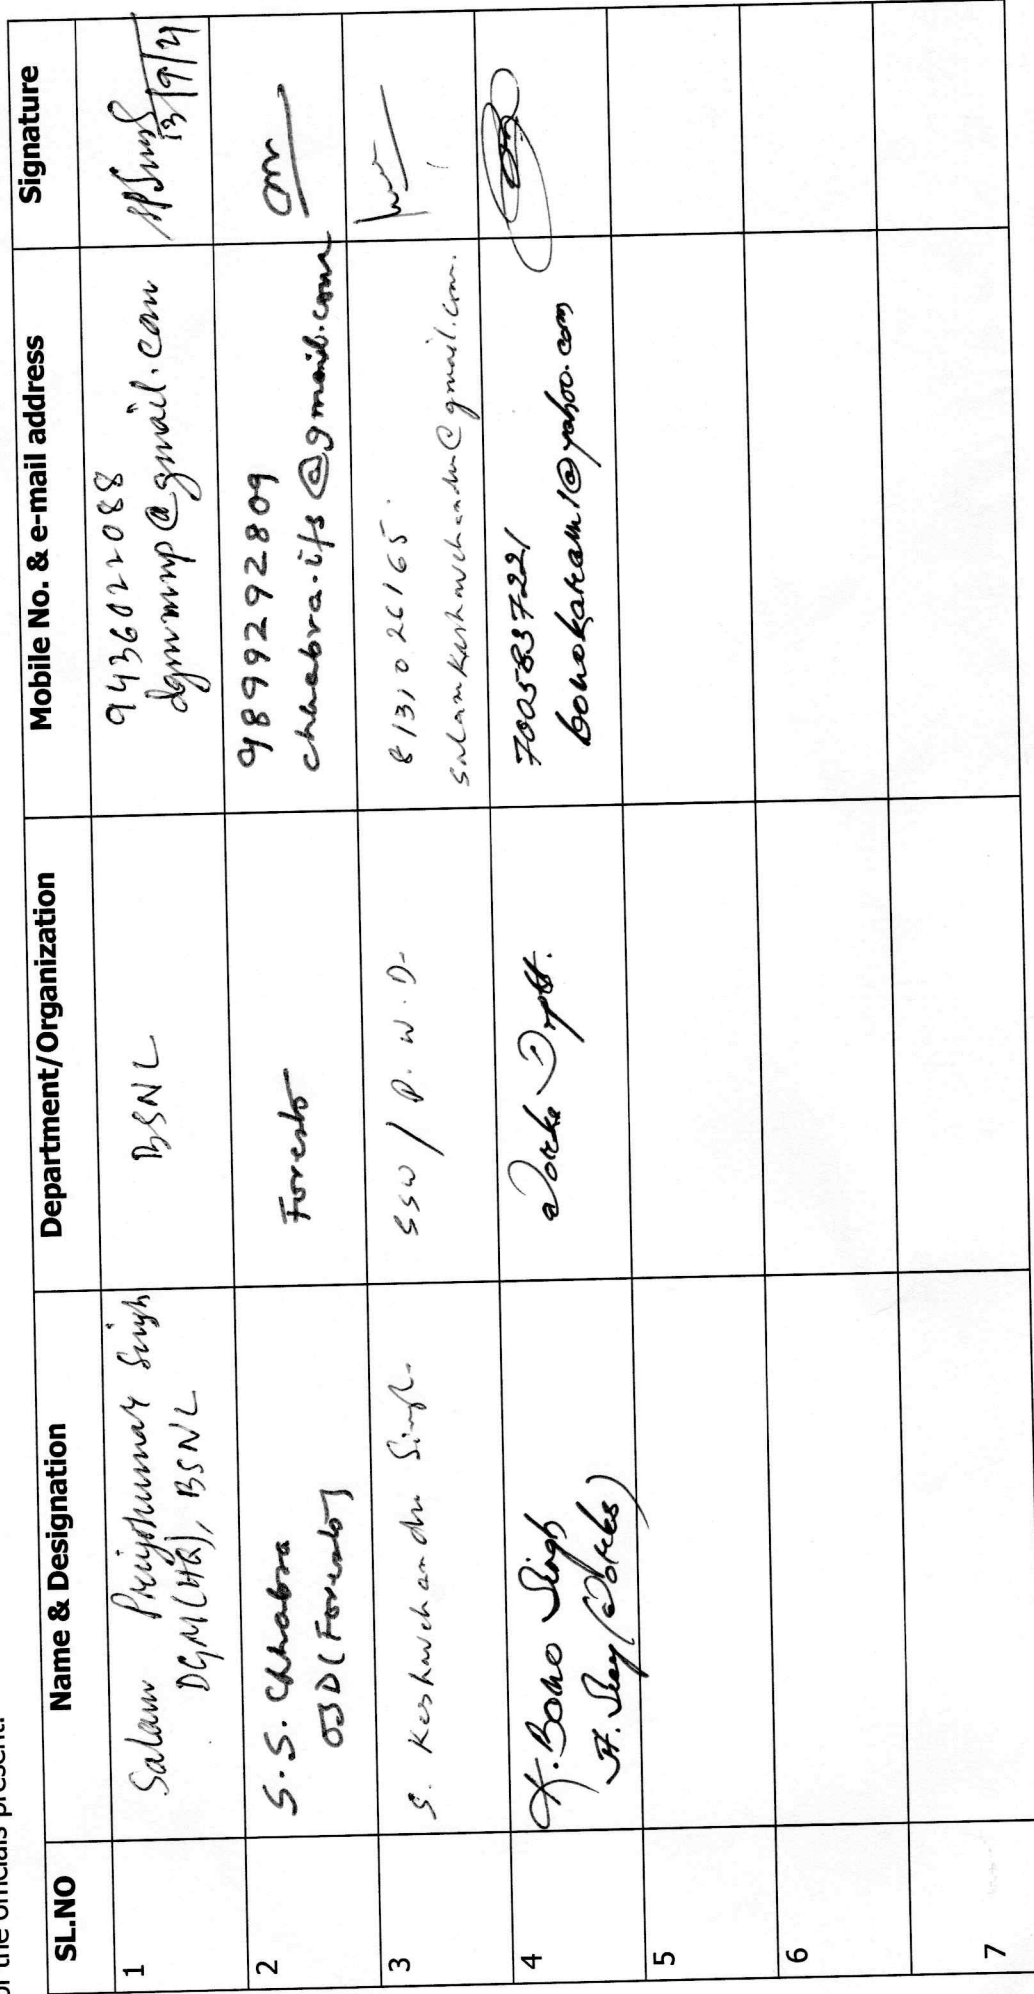 of the officials present.
SL.NO Name & Designation Department/Organization Mobile No. & e-mail address Signature
1 Salam Priyokumar Singh BSNL 9436022088
DGM(HQ), BSNL dgmmnp@gmail.com 13/9/21
2 S.S. Chhabra Forests 9899292809
OSD(Forests) chhabra.ifs@gmail.com
3 S. Keshavchandra Singh SSW / P.W.D. 8131026165
salamkeshavchandra@gmail.com.
4 K. Bono Singh Works Deptt. 7005837221
Jt. Secy (Works) bonokaram1@yahoo.com
5
6
7